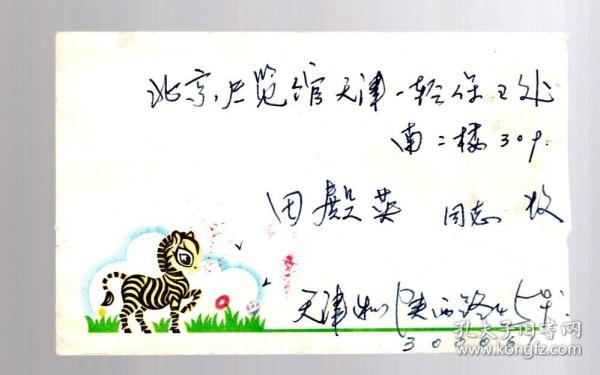 北京,展览馆天津一轻保卫处
南二楼309.
田殿英 同志 收
天津 陕西路
孔夫子旧书网
www.kongfz.com